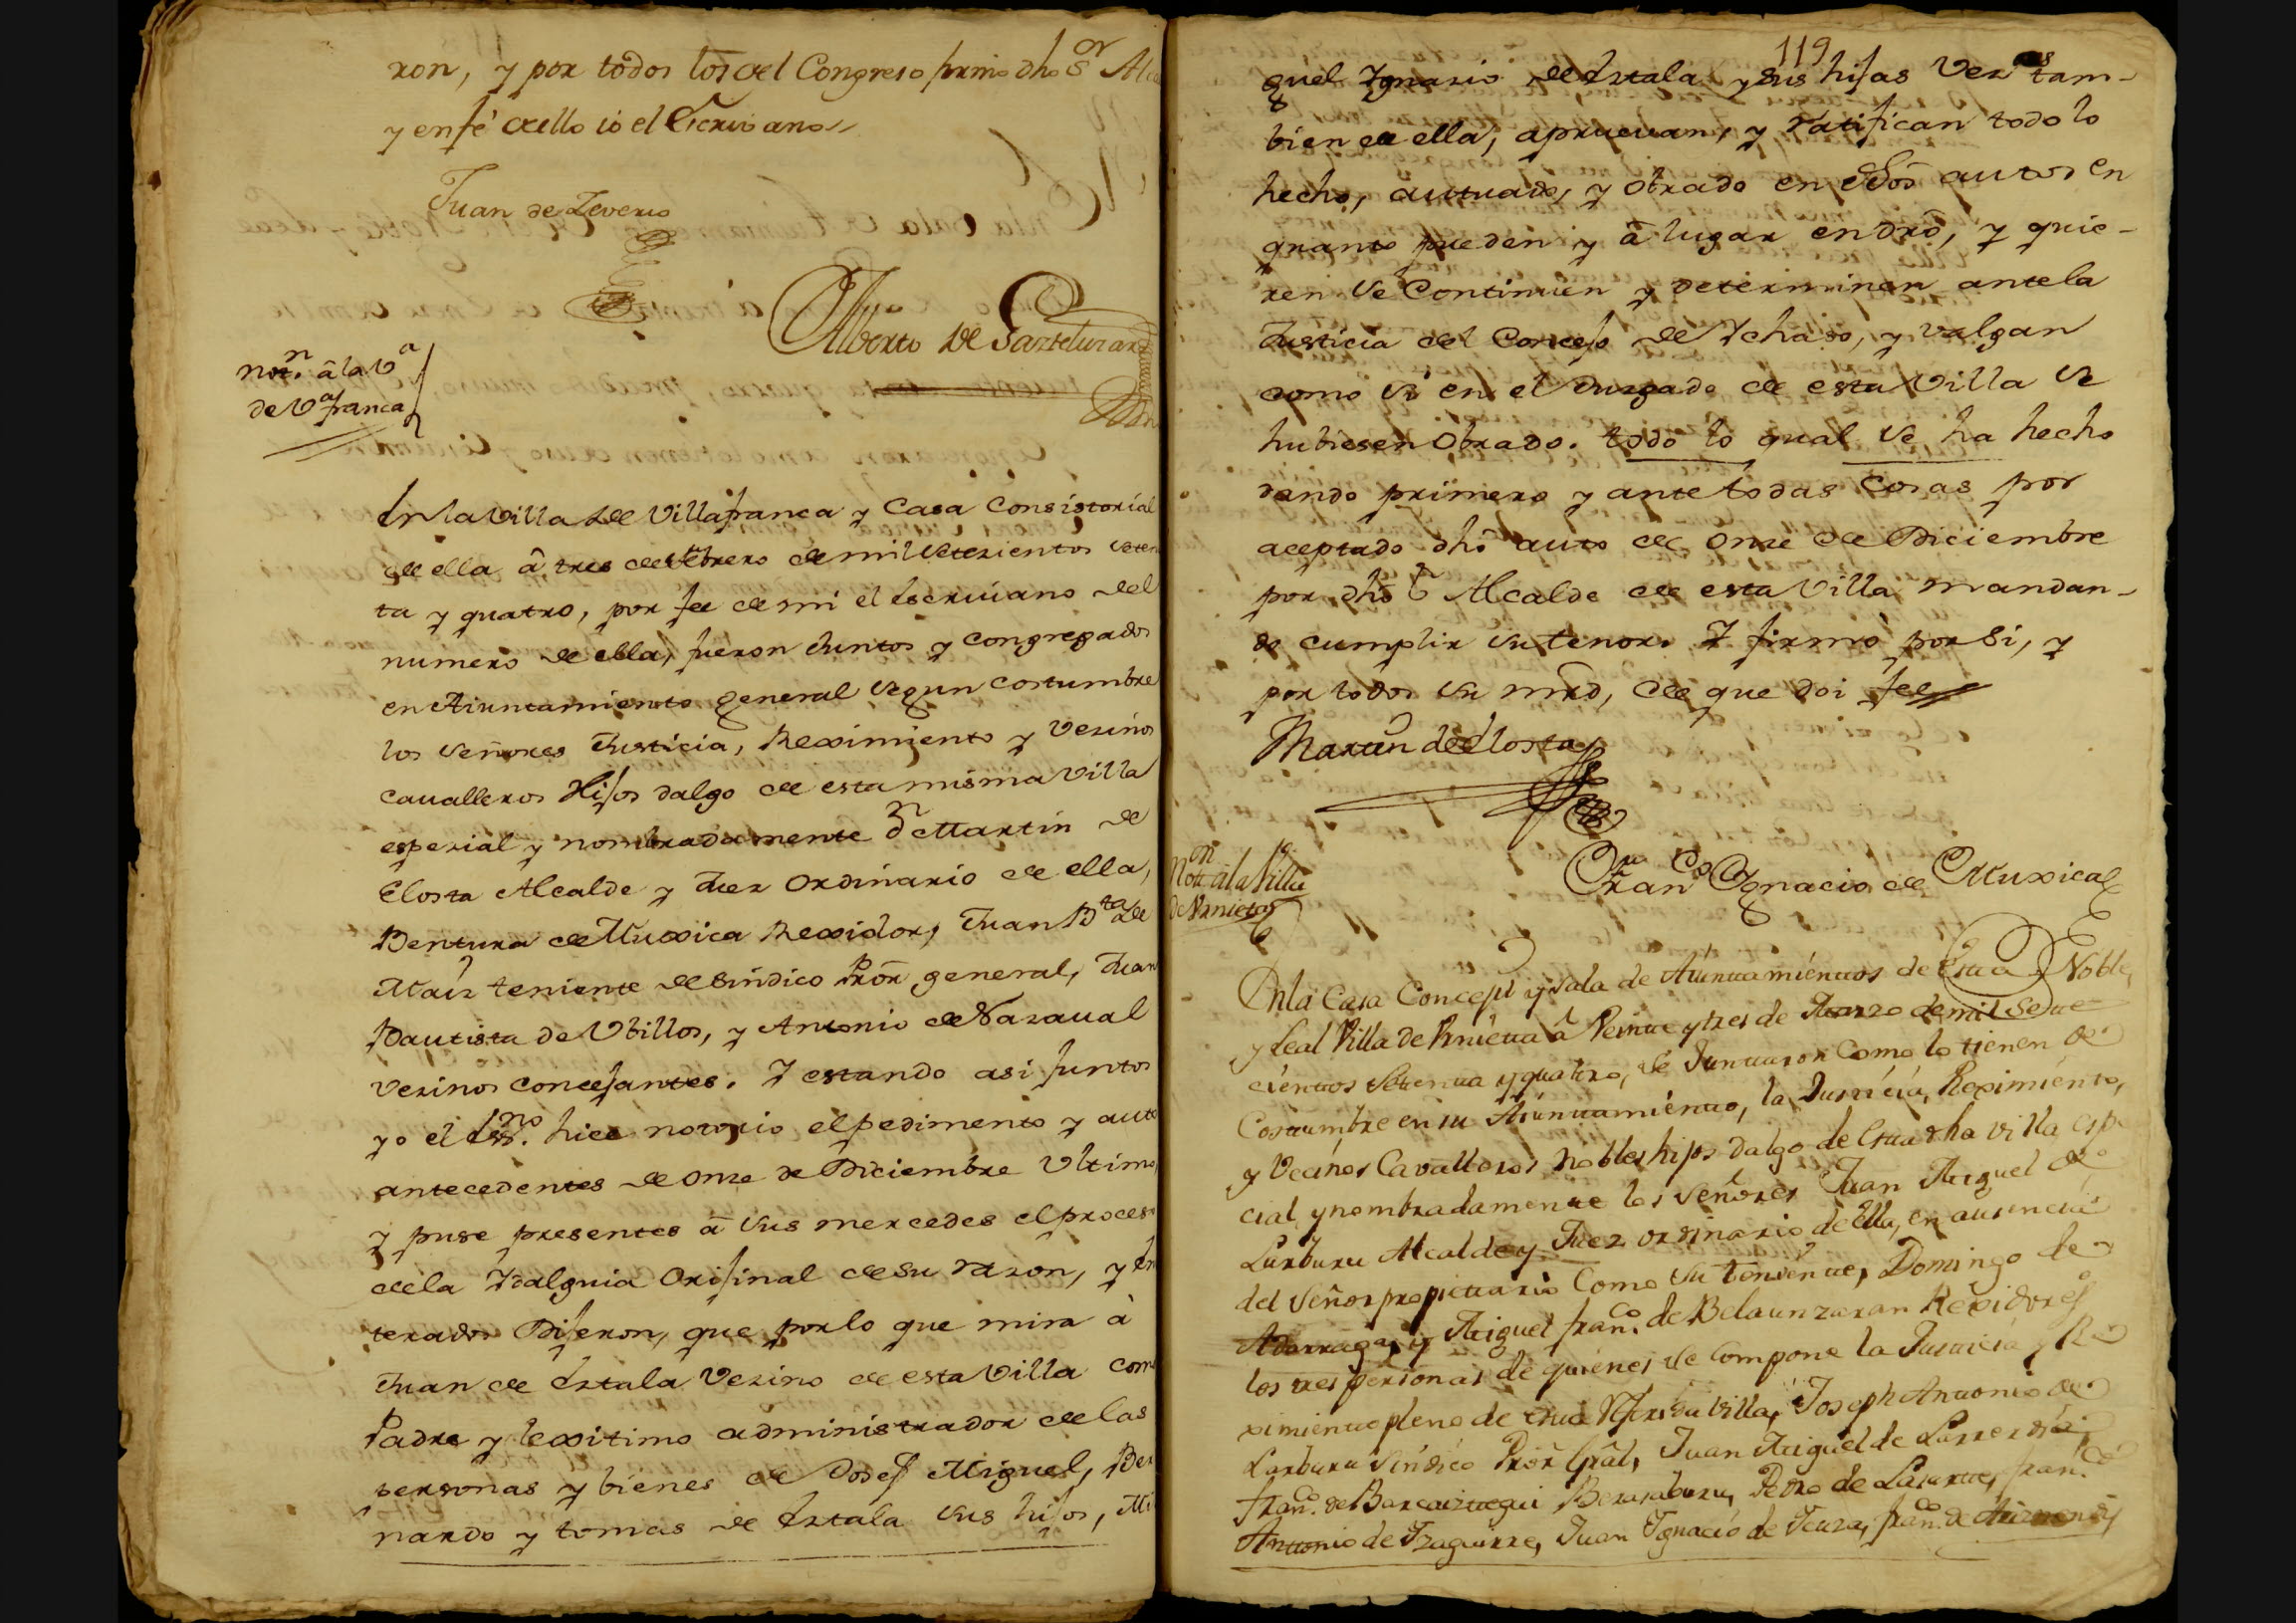 ron, y por todos los del Congreso firmó dho Sr Alca
y en fé dello io el Escrivano
Juan de Zeverio
Alberto de Sarteluzar
Notn. â la Va
de Va franca
En la Villa de Villafranca y Casa Consistorial
de ella â tres de febrero de mil setezientos seten
ta y quatro, por fee de mi el Escriuano del
numero de ella, fueron Juntos y congregados
en Aiuntamiento general segun costumbre
los señores Justicia, Reximiento y Vezinos
caualleros Hijos dalgo de esta misma Villa
espezial y nombradamente Dn Martin de
Elosta Alcalde y Juez Ordinario de ella,
Bentura de Muxica Rexidor, Juan Bta de
Maiz teniente de Sindico Pror general, Juan
Bautista de Vbillos, y Antonio de Nazaual
vezinos concejantes. Y estando asi Juntos
yo el Essno. hice notorio el pedimento y auto
antecedentes de onze de Diciembre Vltimo
y puse presentes â sus mercedes el proceso
de la Ydalguia Orijinal de su razon, y En
terados Dijeron, que por lo que mira à
Juan de Eztala Vezino de esta Villa como
Padre y lexitimo administrador de las
personas y bienes de Josef Miguel, Ber
nardo y tomas de Eztala sus hijos, Mi
119
guel Ygnazio de Eztala y sus hijas Vezas tam-
bien de ella, aprueuan, y ratifican todo lo
hecho, autuado, y obrado en edos autos en
quanto pueden y â lugar en dro, y quie-
ren se Continuen y determinen ante la
Justicia del Concejo de Ychaso, y valgan
como si en el Juzgado de esta Villa se
hubiesen obrado. todo lo qual se ha hecho
dando primero y ante todas Cosas por
aceptado dho auto de onze de Diciembre
por dho Sr Alcalde de esta Villa mandan-
do cumplir su tenor. Y firmó por Si, y
por todos su mrd, de que doi fee
Martin de Elosta
Franco Ygnacio de Muxica
Noton â la Villa
de Vrnieta
En la Casa Concejil y sala de Aiuntamientos de Esta Noble,
y Leal Villa de Vrnieta â Veinte y tres de Marzo de mil Sete
cientos Setenta y quatro, se Juntaron Como lo tienen de
Costumbre en su Aiuntamiento, la Justicia, Reximiento,
y Vecinos Cavalleros Nobles hijos dalgo de Esta dha villa espe
cial y nombradamente los señores Juan Miguel de
Larburu Alcalde y Juez ordinario de Ella, en ausencia
del Señor propietario Como su teniente, Domingo de
Adarraga, y Miguel Franco. de Belaunzaran Rexidores
los tres personas de quienes se Compone la Justicia y Re
ximiento pleno de Esta referida Villa, Joseph Antonio de
Larburu Sindico Pror Gral, Juan Miguel de Larrerdia,
Franco. de Barcaiztegui Berasaburu, Pedro de Lasarte, Franco.
Antonio de Yzaguirre, Juan Ygnacio de Teuza, Franco. de Aizmendi